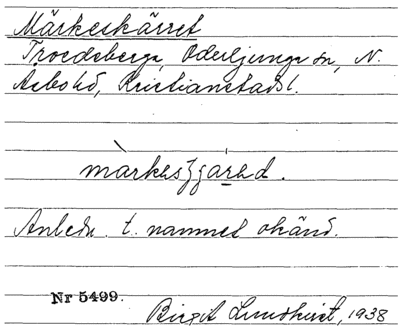 Märkeskärret
Troedsberga, Oderljunga sn, N.
Åsbo hd, Kristianstads l.
Anledn. t. namnet okänd.
Nr 5499.
Birgit Lundkvist, 1938